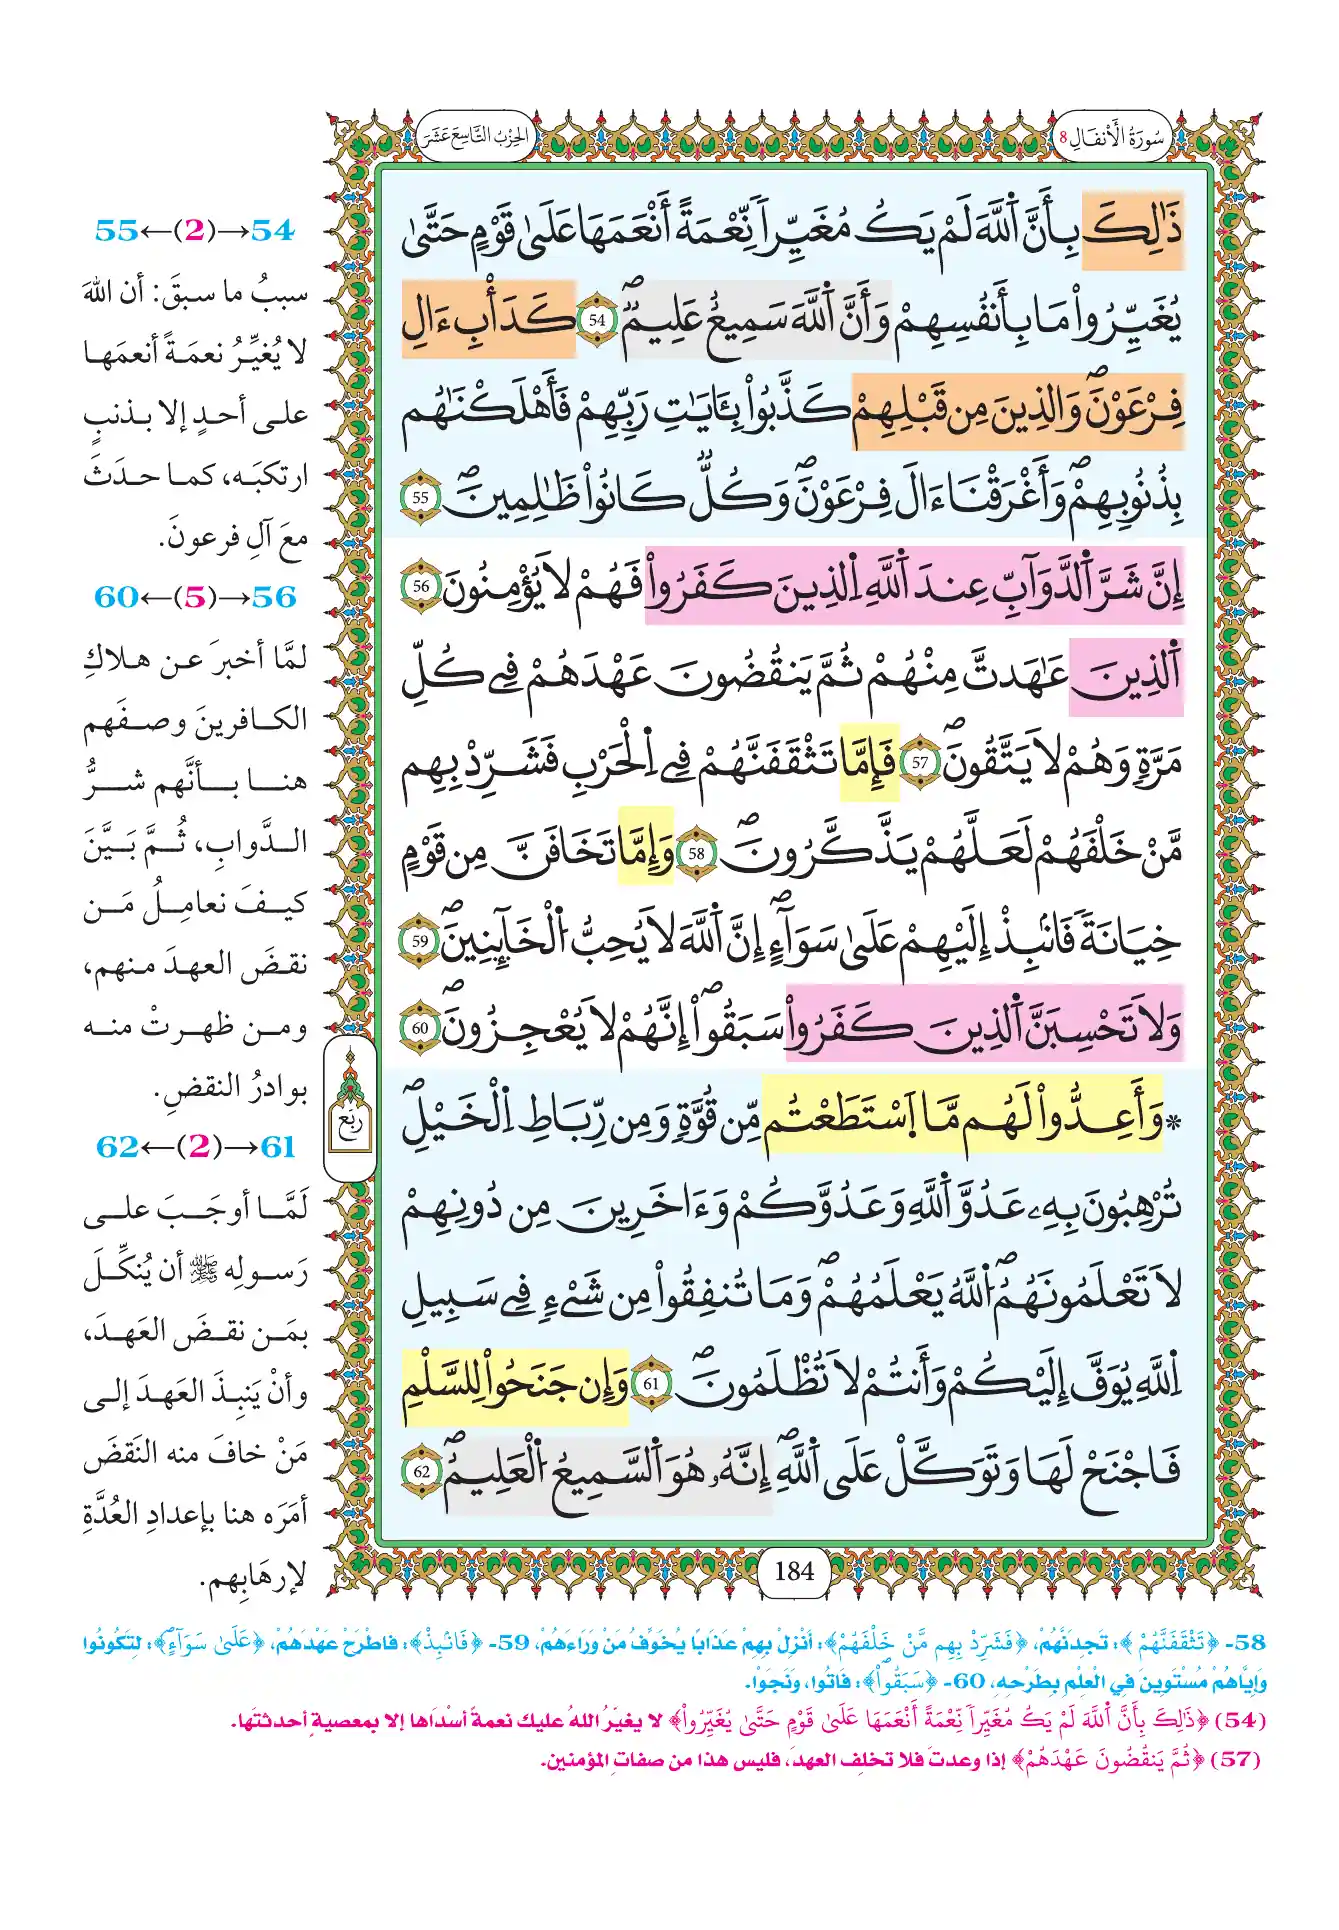 سُورَةُ الأَنفَالِ 8
الحِزْبُ التَّاسِعَ عَشَرَ
ذَٰلِكَ بِأَنَّ اَ۬للَّهَ لَمْ يَكُ مُغَيِّراٗ نِّعْمَةً أَنْعَمَهَا عَلَىٰ قَوْمٍ حَتَّىٰ
يُغَيِّرُواْ مَا بِأَنفُسِهِمْ وَأَنَّ اَ۬للَّهَ سَمِيعٌ عَلِيمٞۖ 54 كَدَأْبِ ءَالِ
فِرْعَوْنَۖ وَالذِينَ مِن قَبْلِهِمْ كَذَّبُواْ بِـَٔايَٰتِ رَبِّهِمْ فَأَهْلَكْنَٰهُم
بِذُنُوبِهِمْۖ وَأَغْرَقْنَا ءَالَ فِرْعَوْنَۖ وَكُلّٞ كَانُواْ ظَٰلِمِينَۖ 55
إِنَّ شَرَّ اَ۬لدَّوَآبِّ عِندَ اَ۬للَّهِ اِ۬لذِينَ كَفَرُواْ فَهُمْ لَا يُؤْمِنُونَ 56
اَ۬لذِينَ عَٰهَدتَّ مِنْهُمْ ثُمَّ يَنقُضُونَ عَهْدَهُمْ فِے كُلِّ
مَرَّةٖ وَهُمْ لَا يَتَّقُونَۖ 57 فَإِمَّا تَثْقَفَنَّهُمْ فِے اِ۬لْحَرْبِ فَشَرِّدْ بِهِم
مَّنْ خَلْفَهُمْ لَعَلَّهُمْ يَذَّكَّرُونَۖ 58 وَإِمَّا تَخَافَنَّ مِن قَوْمٍ
خِيَانَةٗ فَانۢبِذْ إِلَيْهِمْ عَلَىٰ سَوَآءٍۖ إِنَّ اَ۬للَّهَ لَا يُحِبُّ اُ۬لْخَآئِنِينَۖ 59
وَلَا تَحْسِبَنَّ اَ۬لذِينَ كَفَرُواْ سَبَقُوٓاْۖ إِنَّهُمْ لَا يُعْجِزُونَۖ 60
* وَأَعِدُّواْ لَهُم مَّا اَ۪سْتَطَعْتُم مِّن قُوَّةٖ وَمِن رِّبَاطِ اِ۬لْخَيْلِۖ
تُرْهِبُونَ بِهِۦ عَدُوَّ اَ۬للَّهِ وَعَدُوَّكُمْ وَءَاخَرِينَ مِن دُونِهِمْ
لَا تَعْلَمُونَهُمُۖ اُ۬للَّهُ يَعْلَمُهُمْۖ وَمَا تُنفِقُواْ مِن شَےْءٖ فِے سَبِيلِ
اِ۬للَّهِ يُوَفَّ إِلَيْكُمْ وَأَنتُمْ لَا تُظْلَمُونَۖ 61 وَإِن جَنَحُواْ لِلسَّلْمِ
فَاجْنَحْ لَهَا وَتَوَكَّلْ عَلَى اَ۬للَّهِۖ إِنَّهُۥ هُوَ اَ۬لسَّمِيعُ اُ۬لْعَلِيمُۖ 62
184
رُبْع
54→(2)←55
سببُ ما سبقَ: أن اللهَ
لا يُغيِّرُ نعمَةً أنعمَهـا
علـى أحـدٍ إلا بـذنبٍ
ارتكبَـه، كمـا حـدَثَ
معَ آلِ فرعونَ.
56→(5)←60
لمَّا أخبرَ عـن هـلاكِ
الكـافرينَ وصـفَهم
هنـا بـأنَّهم شـرُّ
الـدَّوابِ، ثُـمَّ بَـيَّنَ
كيـفَ نعامِـلُ مَـن
نقـضَ العهـدَ مـنهم،
ومـن ظهـرتْ منـه
بوادرُ النقضِ.
61→(2)←62
لَمَّـا أوجَـبَ علـى
رَسـولِه ﷺ أن يُنكِّـلَ
بمَـن نقـضَ العَهـدَ،
وأنْ يَنبِـذَ العَهـدَ إلـى
مَنْ خافَ منه النَقضَ
أمَرَه هنا بإعدادِ العُدَّةِ
لإرهَابِهم.
58- ﴿تَثْقَفَنَّهُمْ﴾: تَجِدَنَّهُمْ، ﴿فَشَرِّدْ بِهِم مَّنْ خَلْفَهُمْ﴾: أَنْزِلْ بِهِمْ عَذَابًا يُخَوِّفُ مَنْ وَرَاءَهُمْ، 59- ﴿فَانۢبِذْ﴾: فَاطْرَحْ عَهْدَهُمْ، ﴿عَلَىٰ سَوَآءٍۖ﴾: لِتَكُونُوا
وَإِيَّاهُمْ مُسْتَوِينَ فِي الْعِلْمِ بِطَرْحِهِ، 60- ﴿سَبَقُوٓاْۖ﴾: فَاتُوا، وَنَجَوْا.
(54) ﴿ذَٰلِكَ بِأَنَّ اَ۬للَّهَ لَمْ يَكُ مُغَيِّراٗ نِّعْمَةً أَنْعَمَهَا عَلَىٰ قَوْمٍ حَتَّىٰ يُغَيِّرُواْ﴾ لا يغيِّرُ اللهُ عليك نعمةً أسْدَاها إلا بمعصيةٍ أحدثتَها.
(57) ﴿ثُمَّ يَنقُضُونَ عَهْدَهُمْ﴾ إذا وعدتَ فلا تخلِفِ العهدَ، فليس هذا من صفاتِ المؤمنين.